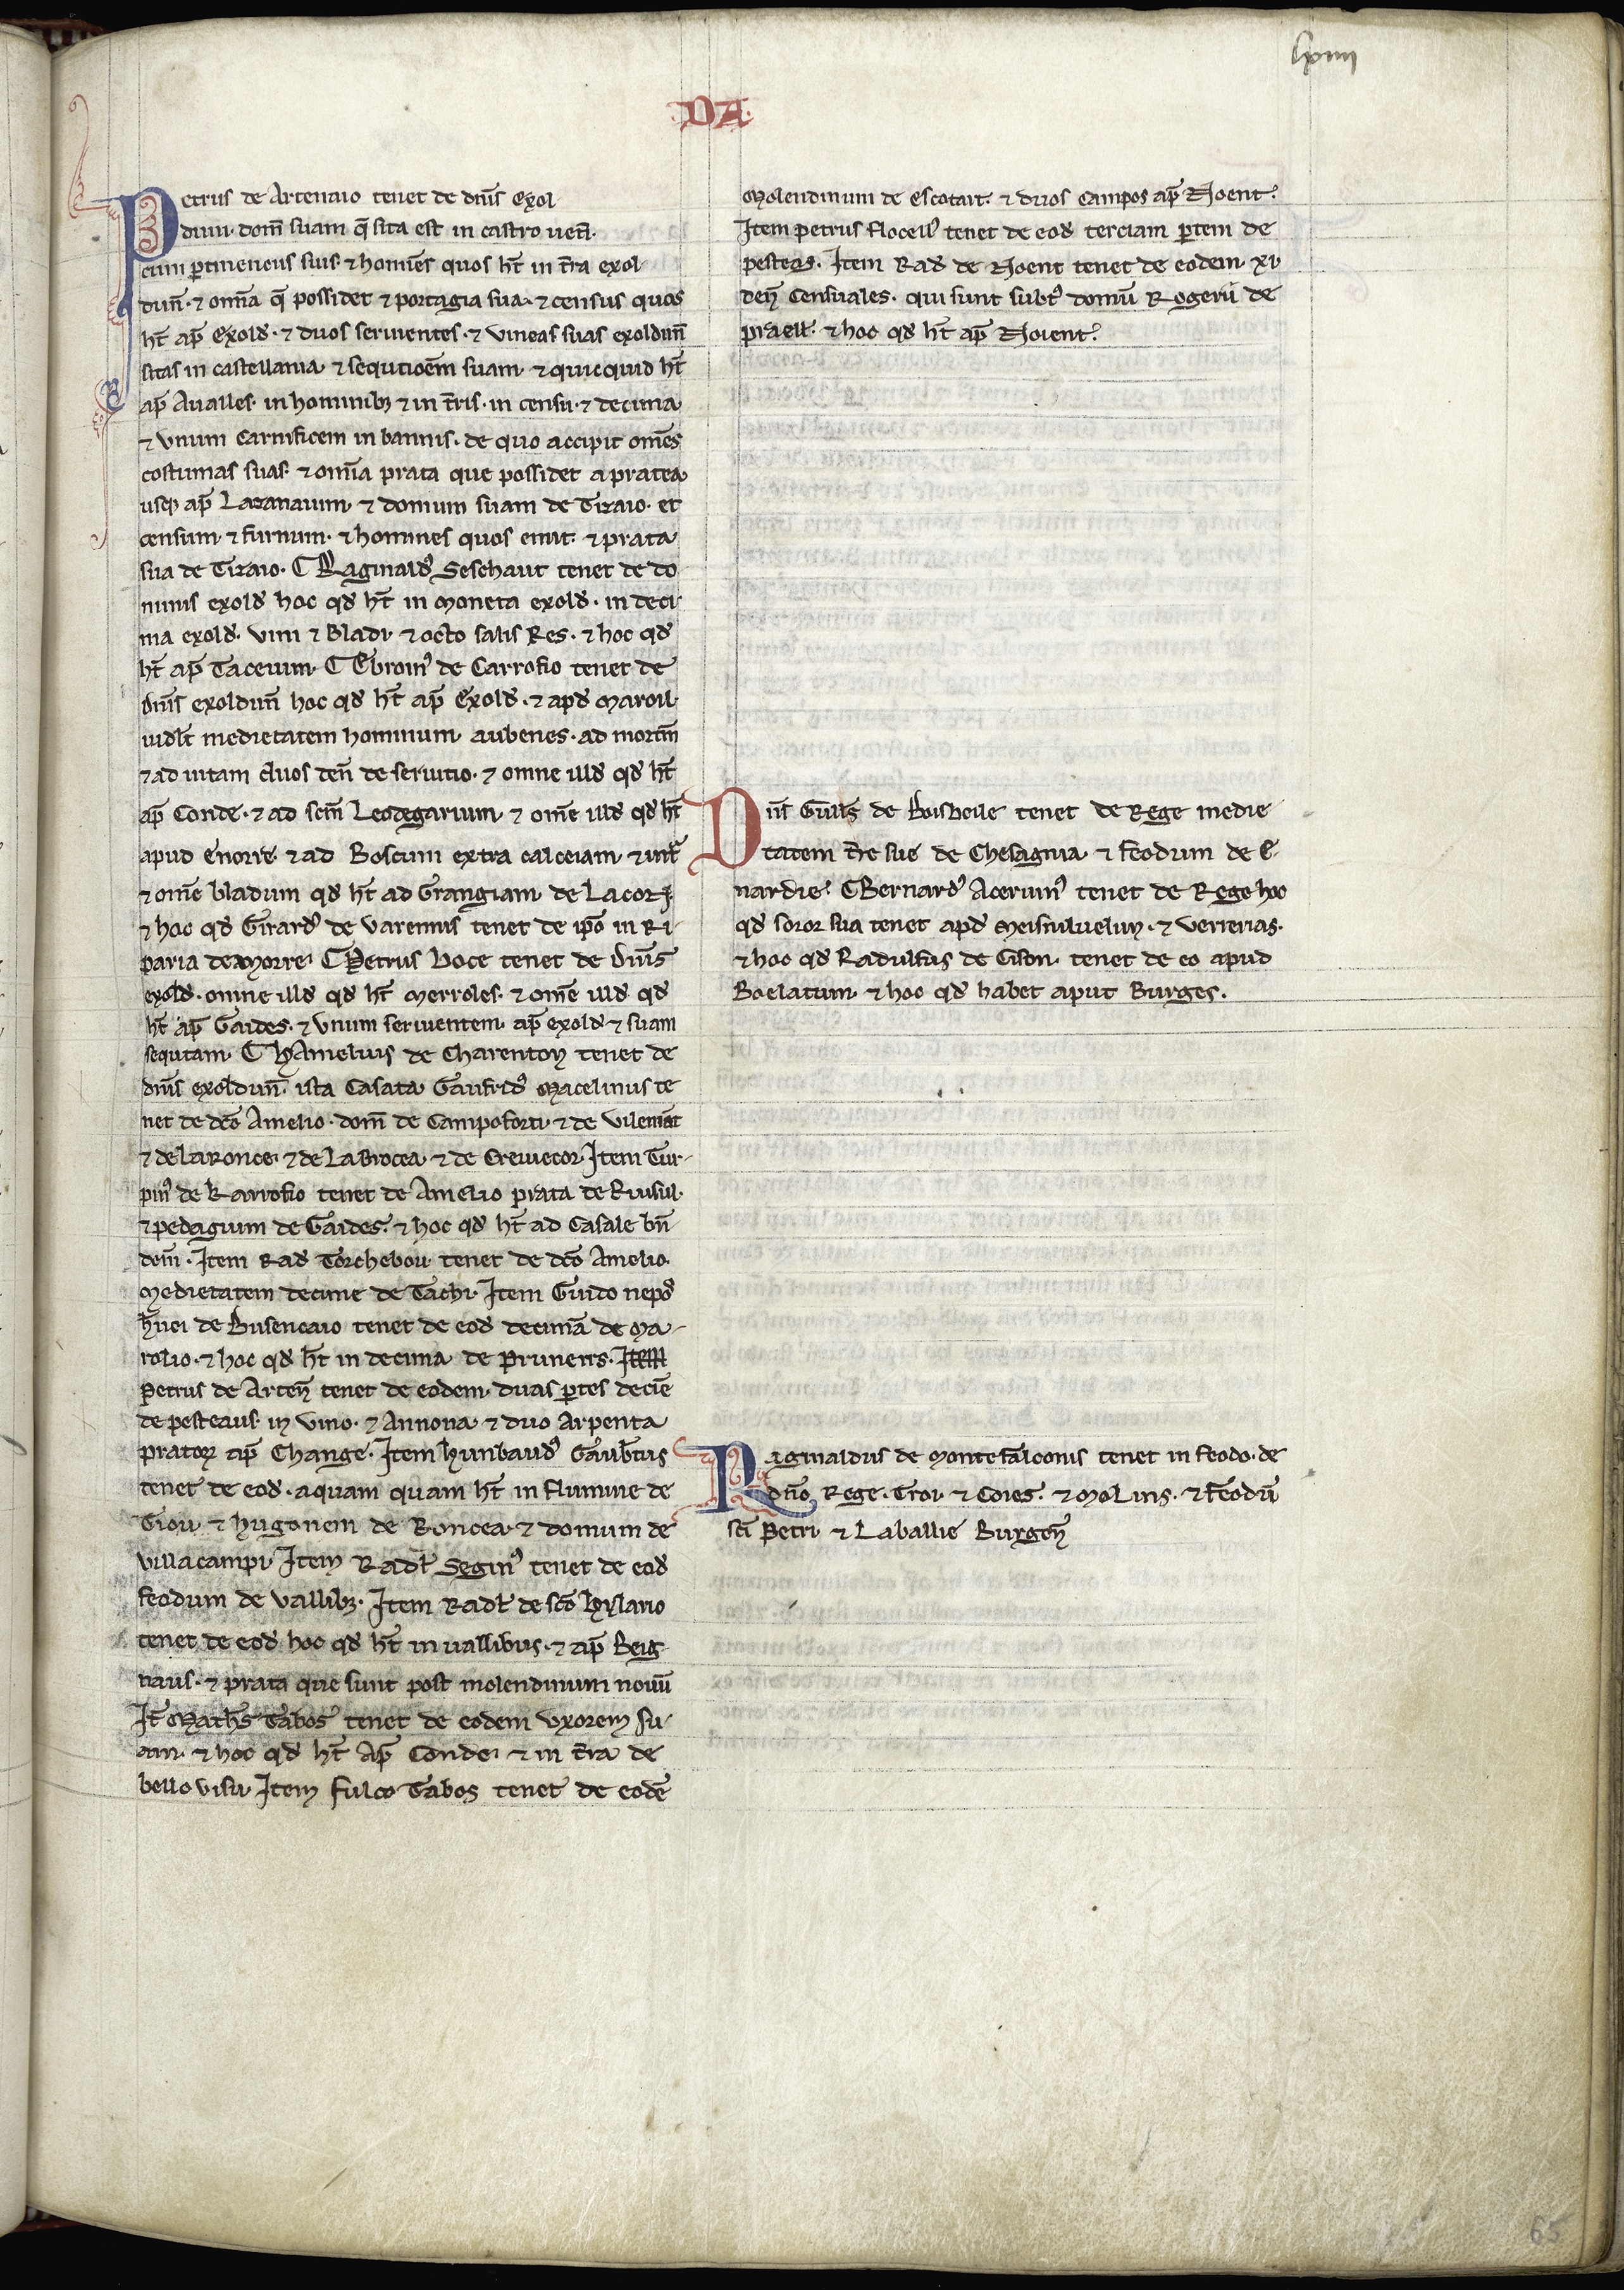 lxiiii
DA
Petrus de Artenaio tenet de dn̄is Exol
duni. dom̄ suam q̄ sita est in castro uet̄i.
cum ꝑtinenciis suis ⁊ homīes quos ht̄ in t̄ra exol
dun̄. ⁊ om̄ia q̄ possidet ⁊ portagia sua. ⁊ census quos
ht̄ ap̄ Exold̓. ⁊ duos seruientes. ⁊ vineas suas exoldun̄
sitas in castellania ⁊ sequtioēm suam ⁊ quicquid ht̄
ap̄ Aualles. in hominibꝫ ⁊ in t̄ris. in censu. ⁊ decima
⁊ vnum carnificem in bannis. de quo accipit om̄es
costumas suas. ⁊ om̄ia prata que possidet a pratea
usqꝫ ap̄ Lazanaium ⁊ domum suam de Tizaio. et
censum ⁊ furnum. ⁊ homines quos emit. ⁊ prata
sua de Tizaio. C Raginald̓ Sesehaut tenet de do
minis exold̓ hoc qd̓ ht̄ in moneta exold̓. in deci
ma exold̓. vini ⁊ Bladi ⁊ octo salis Res. ⁊ hoc qd̓
ht̄ ap̄ Taceium. C Ebroin̓ de Carrofio tenet de
dn̄is exoldun̄ hoc qd̓ ht̄ ap̄ Exold̓. ⁊ apd̓ maroil.
uidl̄t medietatem hominum aubenes. ad mortē
⁊ ad uitam duos den̄ de seruitio. ⁊ omne illd̓ qd̓ ht̄
ap̄ Conde. ⁊ ad sc̄m Leodegarium ⁊ om̄e illd̓ qd̓ ht̄
apud enorre ⁊ ad Boscum extra calceiam ⁊ int̄
⁊ om̄e bladum qd̓ ht̄ ad Grangiam de Lacorz.
⁊ hoc qd̓ Girard̓ de Varennis tenet de ip̄o in Ri
paria de morre. C Petrus Boce tenet de Dn̄is
exold̓. omne illd̓ qd̓ ht̄ merroles. ⁊ om̄e illd̓ qd̓
ht̄ ap̄ Gaides. ⁊ vnum seruientem ap̄ exold̓ ⁊ suam
sequtam. C hAmelius de Charenton tenet de
dn̄is exoldun̄. ista Casata Gaufrid̓ Macelinus te
net de dc̄o Amelio. dom̄ de Campoforti. ⁊ de vilemāt
⁊ de laronce. ⁊ de La Brocea ⁊ de Creuecor. Item Tur-
pin̓ de Karrofio tenet de Amelio prata de Riusul.
⁊ pedagium de Gaides. ⁊ hoc qd̓ ht̄ ad Casale bn̄
dem̄. Item Rad̓ Torchebou tenet de dc̄o Amelio.
Medietatem decime de Tachi. Item Guido nepo̓s
h̄uei de Busencaio tenet de eod̓ decimā de Ma-
rolio. ⁊ hoc qd̓ ht̄ in decima de Pruners. Item
Petrus de Arten̄ tenet de eodem duas ꝑtes decīe
de pesteaus. in vino. ⁊ Annona ⁊ duo Arpenta
pratoꝝ ap̄ Change. Item hunbaud̓ Gaub̄tus
tenet de eod̓. aquam quam ht̄ in flumine de
Tiou ⁊ hugonem de Roncea. ⁊ domum de
villacampi. Item Radl̓ Segin̓ tenet de eod̓
feodum de vallibꝫ. Item Radl̓ de sc̄o hylario
tenet de eod̓ hoc qd̓ ht̄ in uallibus. ⁊ ap̄ Beig-
naus. ⁊ prata que sunt post molendinum nouū
It̄ Math̄s Tabos tenet de eodem vxorem su-
am. ⁊ hoc qd̓ ht̄ Ap̄ Conde. ⁊ in t̄ra de
bello visu. Item fulco Tabos tenet de eodē
Molendinum de escotart. ⁊ duos campos ap̄ Noent.
Item petrus flocell̓ tenet de eod̓ terciam ꝑtem de
Item Rad̓ de Noent tenet de eodem xi
den̄ Censuales. qui sunt subt̓ domū Rogerii de
praell. ⁊ hoc qd̓ ht̄ ap̄ Noient.
Dn̄s Guill̄s de Boisbelle tenet de Rege medie
tatem t̄re sue de Chesagnia ⁊ feodum de E.
nardie. C Bernard̓ Acerum̓ tenet de Rege hoc
qd̓ soror sua tenet apd̓ ⁊ verrerias.
⁊ hoc qd̓ Radulfus de Cison tenet de eo apud
Boelatum ⁊ hoc qd̓ habet aput Burges.
Raginaldus de Montefalconis tenet in feodo. de
dn̄o Rege. Croi ⁊ Cores. ⁊ Molins. ⁊ feodū
sc̄i Petri ⁊ Laballie Burgen̄
65